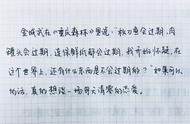 金城武在《重庆森林》里说，“秋刀鱼会过期，肉
罐头会过期，连保鲜纸都会过期，我开始怀疑，在
这个世界上，还有什么东西是不会过期的？”如果可以
的话，真的想谈一场每天清零的恋爱。